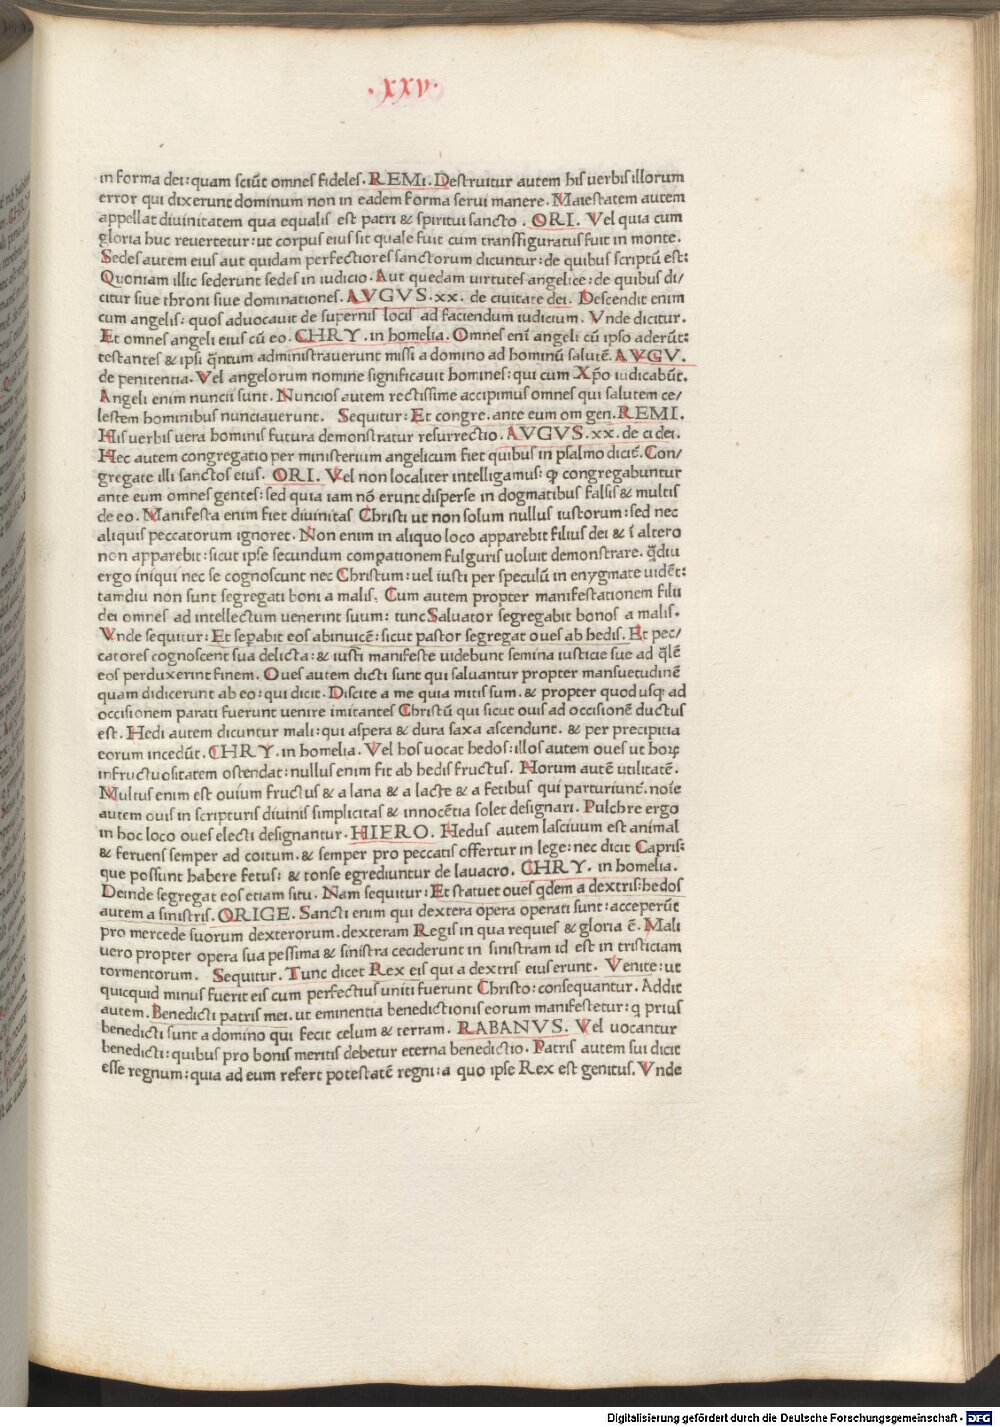 .xxv.
in forma dei: quam sciũt omnes fideles. REMI. Destruitur autem his uerbis illorum
error qui dixerunt dominum non in eadem forma serui manere. Maiestatem autem
appellat diuinitatem qua equalis est patri & spiritui sancto. ORI. Vel quia cum
gloria huc reuertetur: ut corpus eius sit quale fuit cum transfiguratus fuit in monte.
Sedes autem eius aut quidam perfectiores sanctorum dicuntur: de quibus scriptũ est:
Quoniam illic sederunt sedes in iudicio. Aut quedam uirtutes angelice: de quibus di/
citur siue throni siue dominationes. AVGVS. xx. de ciuitate dei. Descendit enim
cum angelis: quos aduocauit de supernis locis ad faciendum iudicium. Vnde dicitur.
Et omnes angeli eius cũ eo. CHRY. in homelia. Omnes eni angeli cũ ipso aderũt:
testantes & ipsi q̃ntum administrauerunt missi a domino ad hominũ salutẽ. AVGV.
de penitentia. Vel angelorum nomine significauit homines: qui cum Xp̃o iudicabũt.
Angeli enim nuncii sunt. Nuncios autem rectissime accipimus omnes qui salutem ce/
lestem hominibus nunciauerunt. Sequitur: Et congre. ante eum om gen. REMI.
His uerbis uera hominis futura demonstratur resurrectio. AVGVS. xx. de ci dei.
Hec autem congregatio per ministerium angelicum fiet quibus in psalmo dicit̃. Con/
gregate illi sanctos eius. ORI. Vel non localiter intelligamus: ꝙ congregabuntur
ante eum omnes gentes: sed quia iam nõ erunt disperse in dogmatibus falsis & multis
de eo. Manifesta enim fiet diuinitas Christi ut non solum nullus iustorum: sed nec
aliquis peccatorum ignoret. Non enim in aliquo loco apparebit filius dei & ĩ altero
non apparebit: sicut ipse secundum compationem fulguris uoluit demonstrare. q̃diu
ergo iniqui nec se cognoscunt nec Christum: uel iusti per speculũ in enygmate uidẽt:
tamdiu non sunt segregati boni a malis. Cum autem propter manifestationem filii
dei omnes ad intellectum uenerint suum: tunc Saluator segregabit bonos a malis.
Vnde sequitur: Et sepabit eos abinuicẽ: sicut pastor segregat oues ab hedis. Et pec/
catores cognoscent sua delicta: & iusti manifeste uidebunt semina iusticie sue ad q̃lẽ
eos perduxerint finem. Oues autem dicti sunt qui saluantur propter mansuetudinẽ
quam didicerunt ab eo: qui dicit. Discite a me quia mitis sum. & propter quod usqꝫ ad
occisionem parati fuerunt uenire imitantes Christũ qui sicut ouis ad occisionẽ ductus
est. Hedi autem dicuntur mali: qui aspera & dura saxa ascendunt. & per precipitia
eorum incedũt. CHRY. in homelia. Vel hos uocat hedos: illos autem oues ut hoꝝ
infructuositatem ostendat: nullus enim fit ab hedis fructus. Horum autẽ utilitatẽ.
Multus enim est ouium fructus & a lana & a lacte & a fetibus qui parturiunt. noĩe
autem ouis in scripturis diuinis simplicitas & innocẽtia solet designari. Pulchre ergo
in hoc loco oues electi designantur. HIERO. Hedus autem lasciuum est animal
& feruens semper ad coitum. & semper pro peccatis offertur in lege: nec dicit Capris:
que possunt habere fetus: & tonse egrediuntur de lauacro. CHRY. in homelia.
Deinde segregat eos etiam situ. Nam sequitur: Et statuet oues q̃dem a dextris: hedos
autem a sinistris. ORIGE. Sancti enim qui dextera opera operati sunt: acceperũt
pro mercede suorum dexterorum. dexteram Regis in qua requies & gloria ẽ. Mali
uero propter opera sua pessima & sinistra ceciderunt in sinistram id est in tristiciam
tormentorum. Sequitur. Tunc dicet Rex eis qui a dextris eius erunt. Venite: ut
quicquid minus fuerit eis cum perfectius uniti fuerunt Christo: consequantur. Addit
autem. Benedicti patris mei. ut eminentia benedictionis eorum manifestetur: q prius
benedicti sunt a domino qui fecit celum & terram. RABANVS. Vel uocantur
benedicti: quibus pro bonis meritis debetur eterna benedictio. Patris autem sui dicit
esse regnum: quia ad eum refert potestatẽ regni: a quo ipse Rex est genitus. Vnde
Digitalisierung gefördert durch die Deutsche Forschungsgemeinschaft - DFG